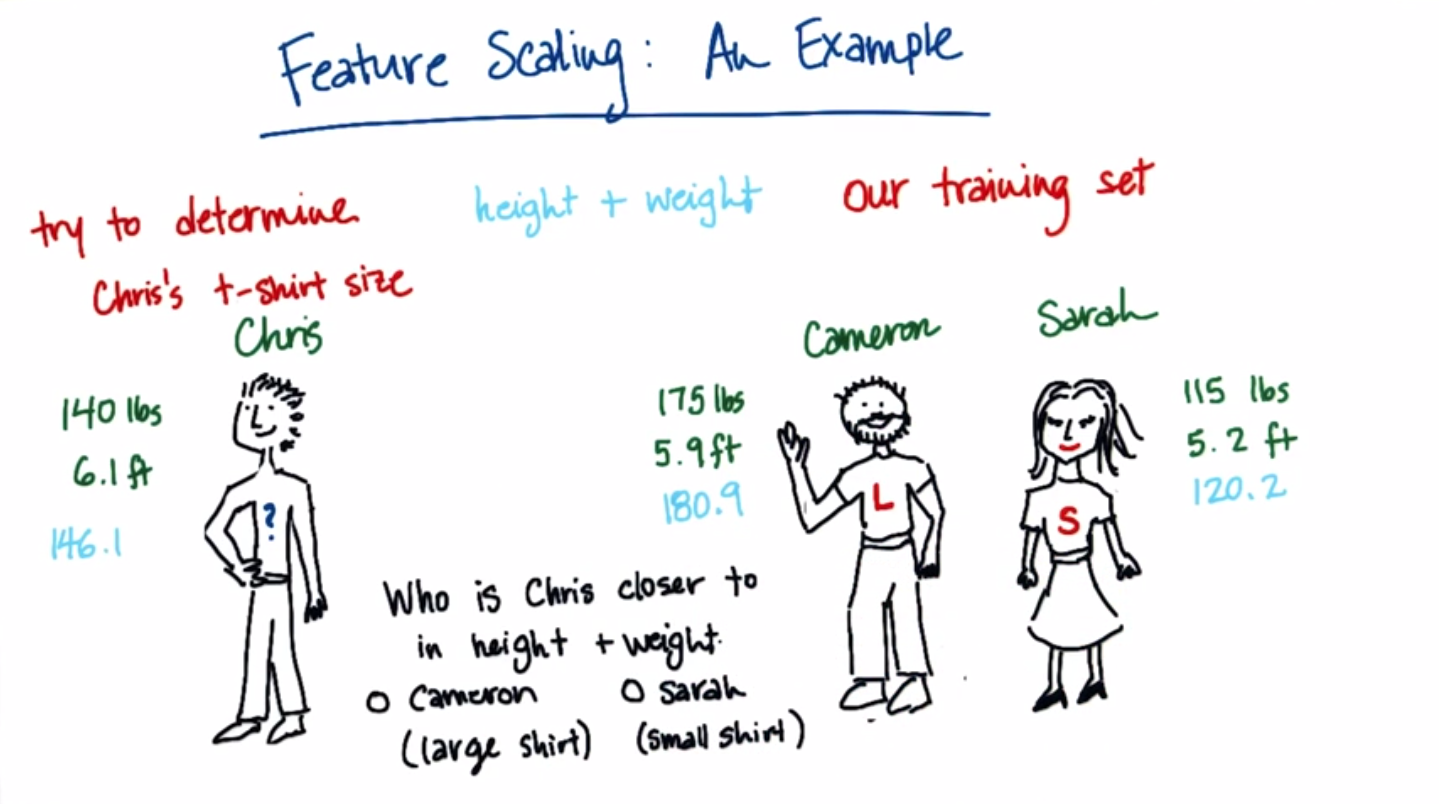 Feature Scaling: An Example
try to determine
Chris's t-shirt size
height + weight
our training set
Chris
140 lbs
6.1 ft
146.1
?
Cameron
175 lbs
5.9 ft
180.9
L
Sarah
115 lbs
5.2 ft
120.2
S
Who is Chris closer to
in height + weight
O Cameron O Sarah
(large shirt) (small shirt)